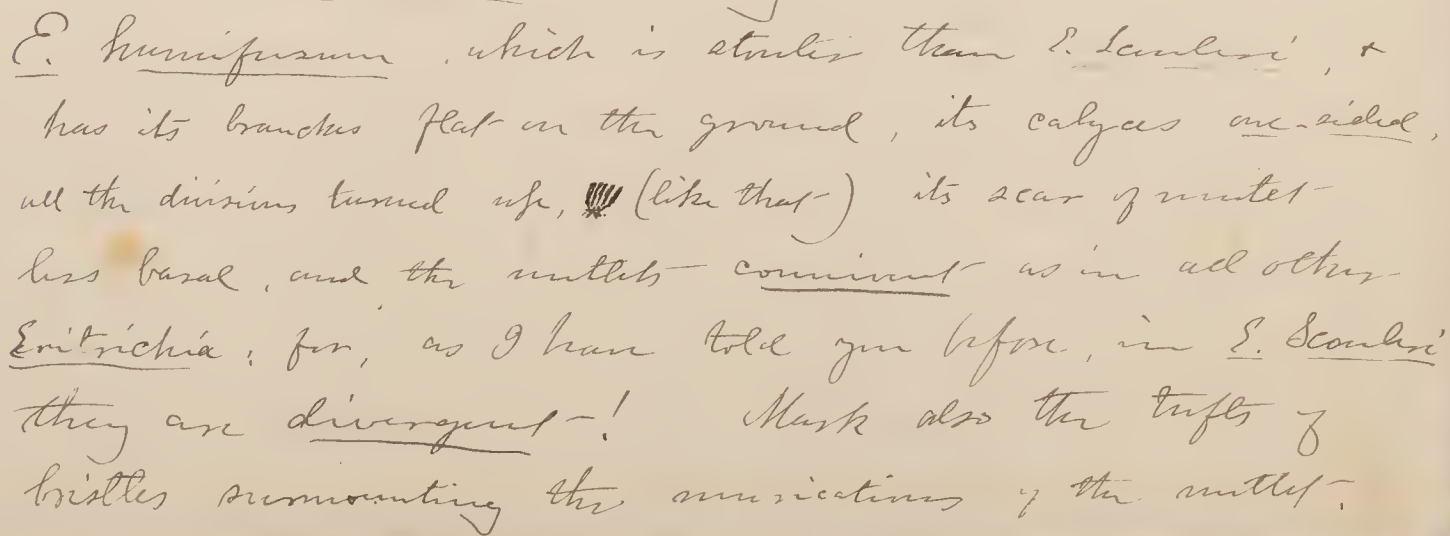 E. humifusum, which is stouter than E. Scouleri, &
has its branches flat on the ground, its calyces one-sided,
all the divisions turned up, (like that) its scar of nutlet
less basal, and the nutlets connivent as in all other
Eritrichia; for, as I have told you before, in E. Scouleri
they are divergent! Mark also the tufts of
bristles surmounting the murications of the nutlet.